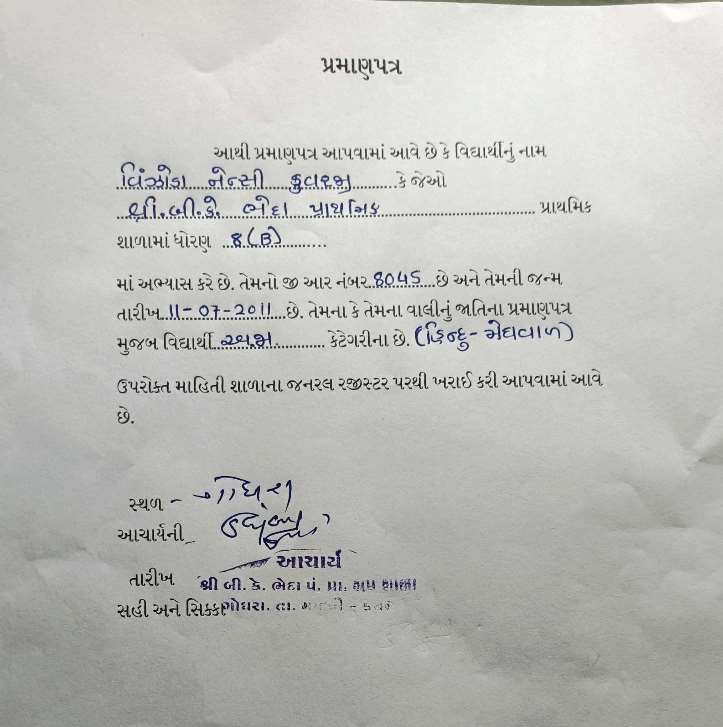 પ્રમાણપત્ર
આથી પ્રમાણપત્ર આપવામાં આવે છે કે વિદ્યાર્થીનું નામ
વિંઝોડા નેન્સી કુવરજી કે જેઓ
શ્રી.બી.કે. ભેદા પ્રાથમિક પ્રાથમિક
શાળામાં ધોરણ 8(B)
માં અભ્યાસ કરે છે. તેમનો જી આર નંબર 8045 છે અને તેમની જન્મ
તારીખ 11-07-2011 છે. તેમના કે તેમના વાલીનું જાતિના પ્રમાણપત્ર
મુજબ વિદ્યાર્થી કેટેગરીના છે. (હિન્દુ-મેઘવાળ)
ઉપરોક્ત માહિતી શાળાના જનરલ રજીસ્ટર પરથી ખરાઈ કરી આપવામાં આવે
છે.
સ્થળ -
આચાર્યની
આચાર્ય
તારીખ શ્રી બી. કે. ભેદા પં. પ્રા. શાળા
સહી અને સિક્કા ગોધરા. તા.